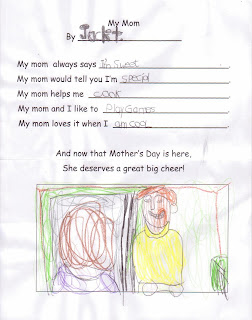 My Mom
By
My mom always says I'm Sweet
My mom would tell you I'm special
My mom helps me cook
My mom and I like to Play Games
My mom loves it when I am cool
And now that Mother's Day is here,
She deserves a great big cheer!